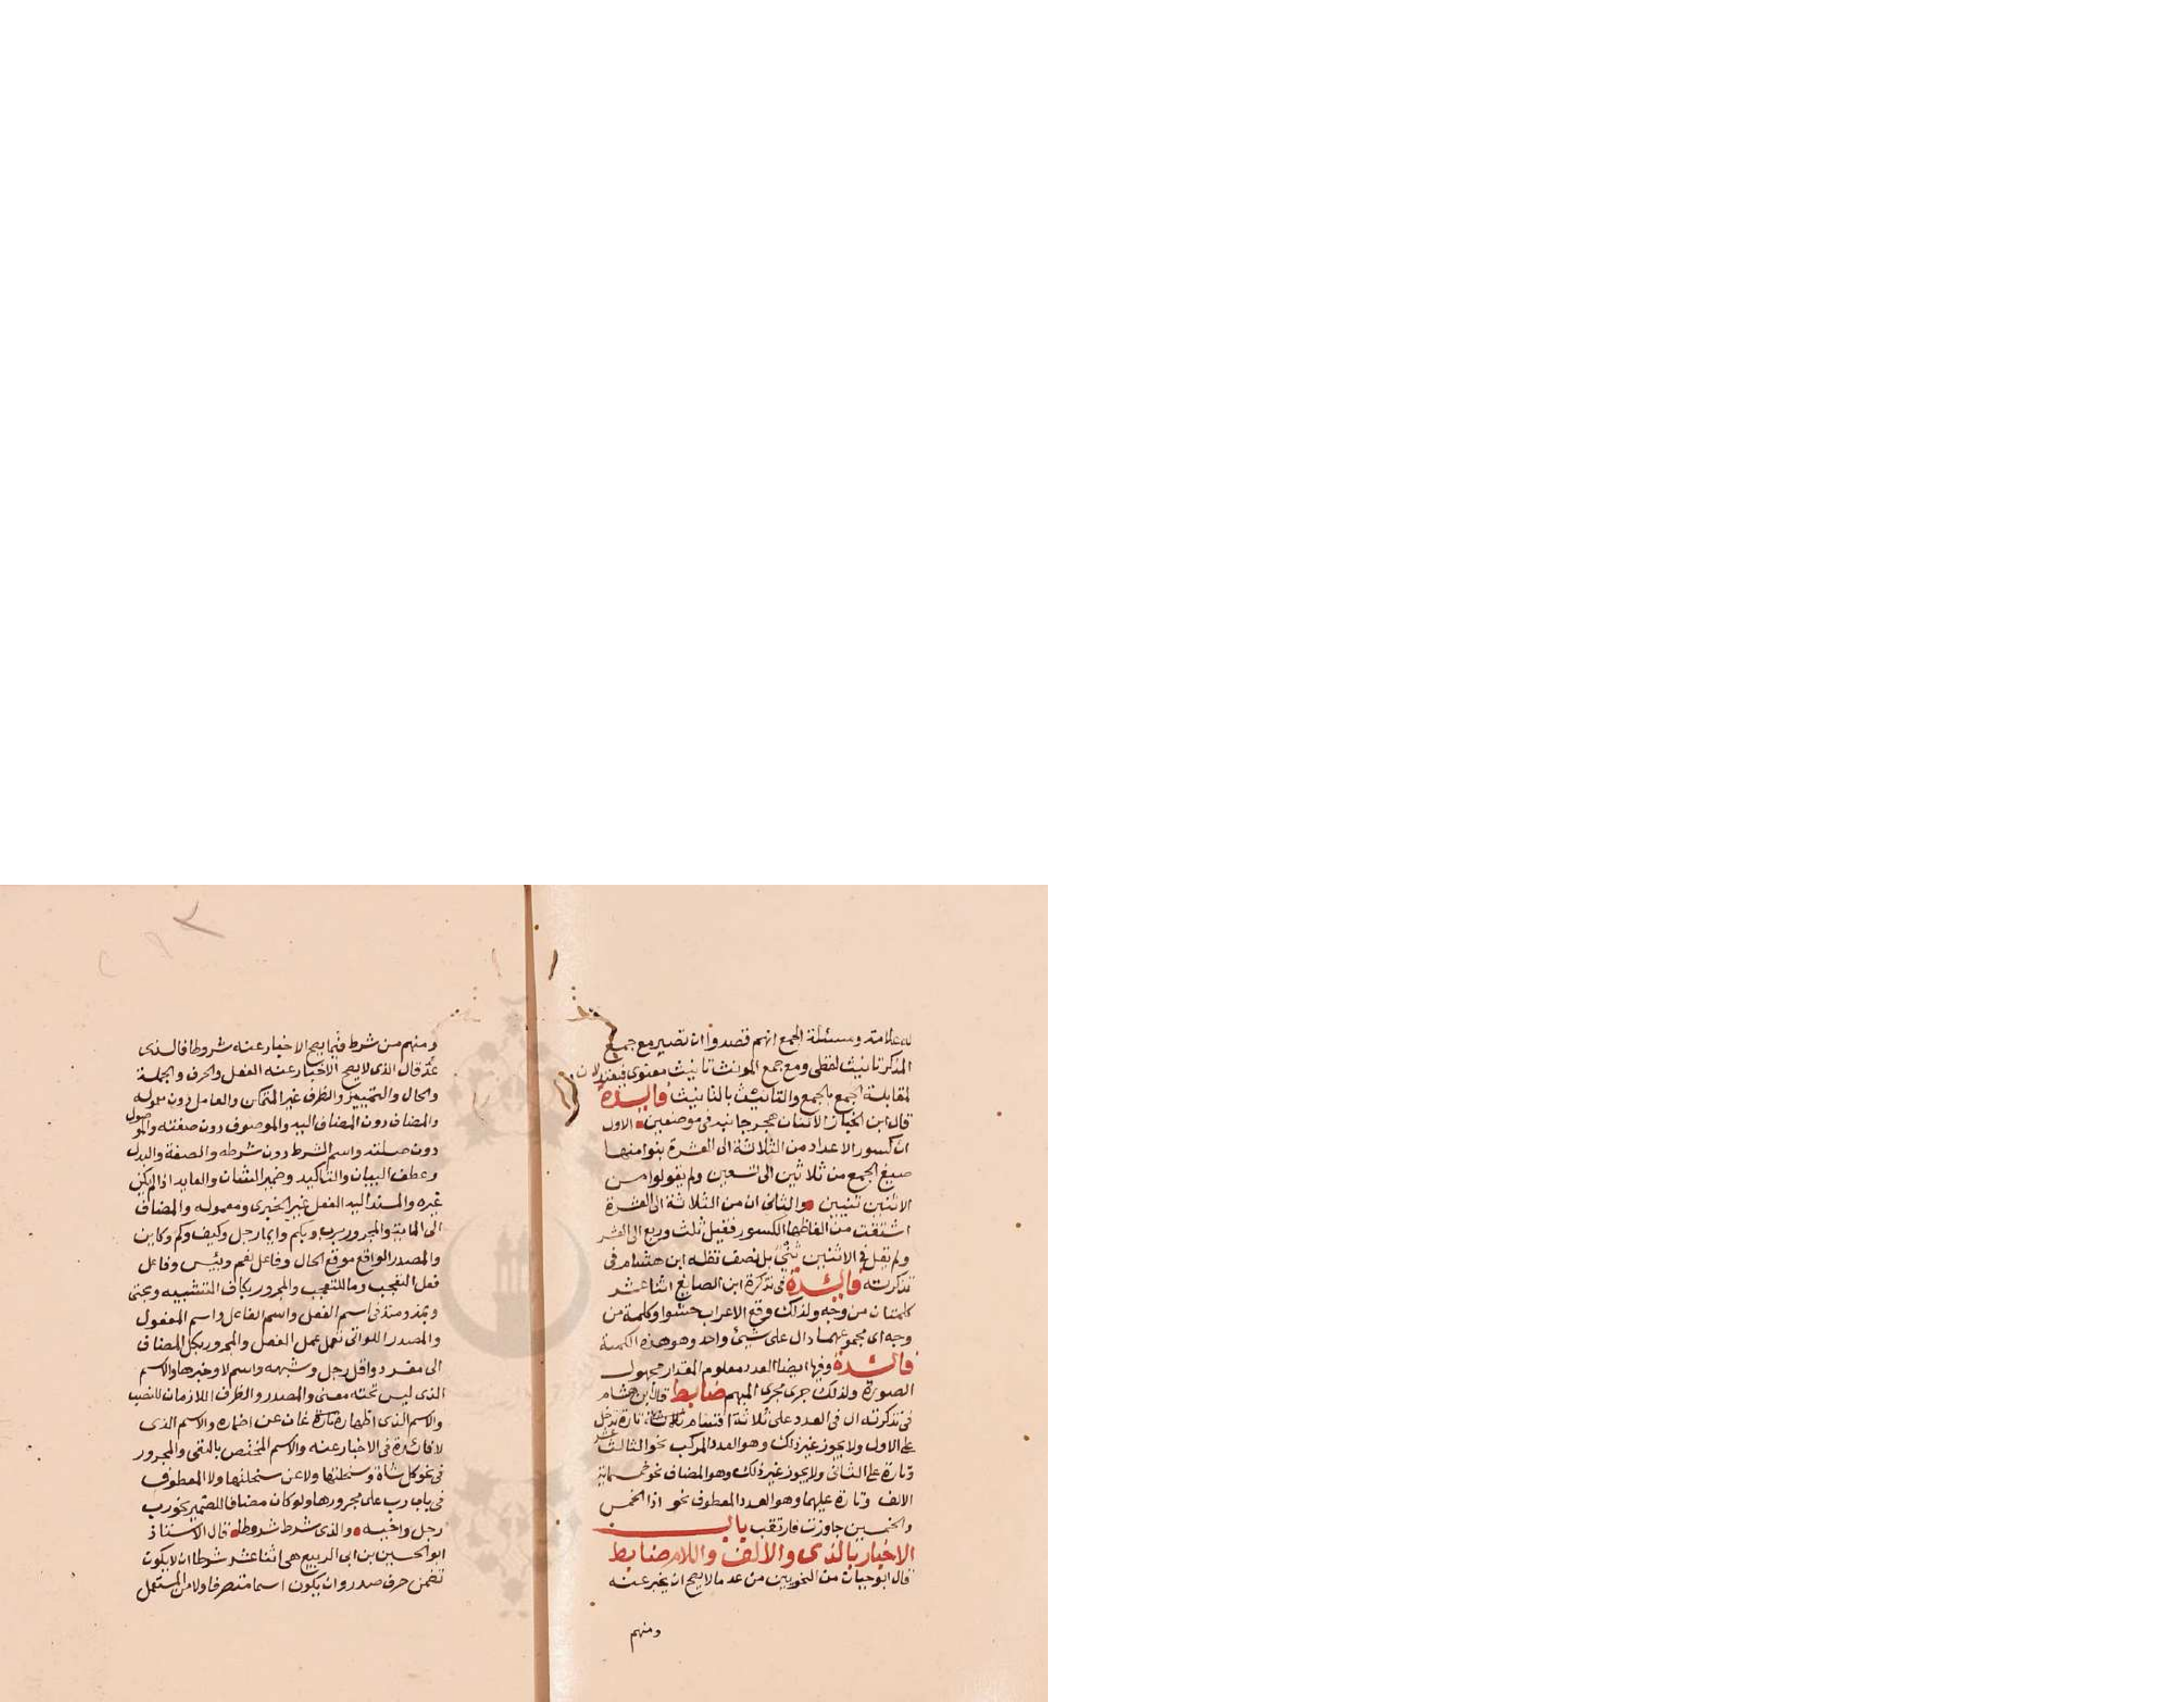 له علامة ومسئلة الجمع انهم قصدوا ان تصير مع جمع
المذكر تانيث لفظى ومع جمع المونث تانيث معنوى فيعتدلان
لمقابلة الجمع بالجمع والتانيث بالتانيث فايدة
قال ابن الخباز الاثنان هجر جانبه فى موضعين الاول
ان كسور الاعداد من الثلاثة الى العشرة بنوا منها
صيغ الجمع من ثلاثين الى تسعين ولم يقولوا من
الاثنين ثنيين والثانى ان من الثلاثة الى العشرة
اشتقت من الفاظها الكسور فقيل ثلث وربع الى العشر
ولم تقل فى الاثنين ثنى بل نصف نقله ابن هشام فى
تذكرته فائدة فى تذكرة ابن الصايغ اثنا عشر
كلمتان من وجه ولذلك وقع الاعراب حشوا وكلمة من
وجه اى مجموعهما دال على شيئ واحد وهو هذه الكمية
فائدة وفيها ايضا العدد معلوم المقدار مجهول
الصورة ولذلك جرى مجرى المبهم ضابط قال ابن هشام
فى تذكرته ال فى العدد على ثلاثة اقسام تارة تدخل
على الاول ولا يجوز غير ذلك وهو العدد المركب نحو الثالث عشر
وتارة على الثانى ولا يجوز غير ذلك وهو المضاف نحو خمسماية
الالف وتارة عليهما وهو العدد المعطوف نحو اذا الخمس
والخمسين جاوزت فارتقب باب
الاخبار بالذى والالف واللام ضابط
قال ابو حيان من النحويين من عد ما لا يصح ان يخبر عنه
ومنهم
ومنهم من شرط فيما يصح الاخبار عنه شروطا فالذى
عد قال الذى لا يصح الاخبار عنه الفعل والحرف والجملة
والحال والتمييز والظرف غير المتمكن والعامل دون معموله
والمضاف دون المضاف اليه والموصوف دون صفته والموصول
دون صلته واسم الشرط دون شرطه والصفة والبدل
وعطف البيان والتاكيد وضمير الشان والعايد اذا لم يكن
غيره والمسند اليه الفعل غير الخبرى ومعموله والمضاف
الى الماية والمجرور برب وبكم وايما رجل وكيف وكم وكاين
والمصدر الواقع موقع الحال وفاعل نعم وبئس وفاعل
فعل التعجب وما للتعجب والمجرور بكاف التشبيه وبحتى
وبمذ ومنذ واسم الفعل واسم الفاعل واسم المفعول
والمصدر اللواتى تعمل عمل الفعل والمجرور بكل المضاف
الى مفرد واقل رجل وشبهه واسم لا وخبرها والاسم
الذى ليس تحته معنى والمصدر والظرف اللازمان للنصب
والاسم الذى اظهاره ثان عن اضماره والاسم الذى
لا فائدة فى الاخبار عنه والاسم المختص بالنفى والمجرور
فى نحو كل شاة وسخلتها ولا عن سخلتها ولا المعطوف
فى باب رب على مجرورها ولو كان مضافا للضمير نحو رب
رجل واخيه والذى شرط شروطا قال الاستاذ
ابو الحسين بن ابى الربيع هى اثنا عشر شرطا ان لا يكون
تضمن حرف صدر وان يكون اسما متصرفا ولا من المستعمل